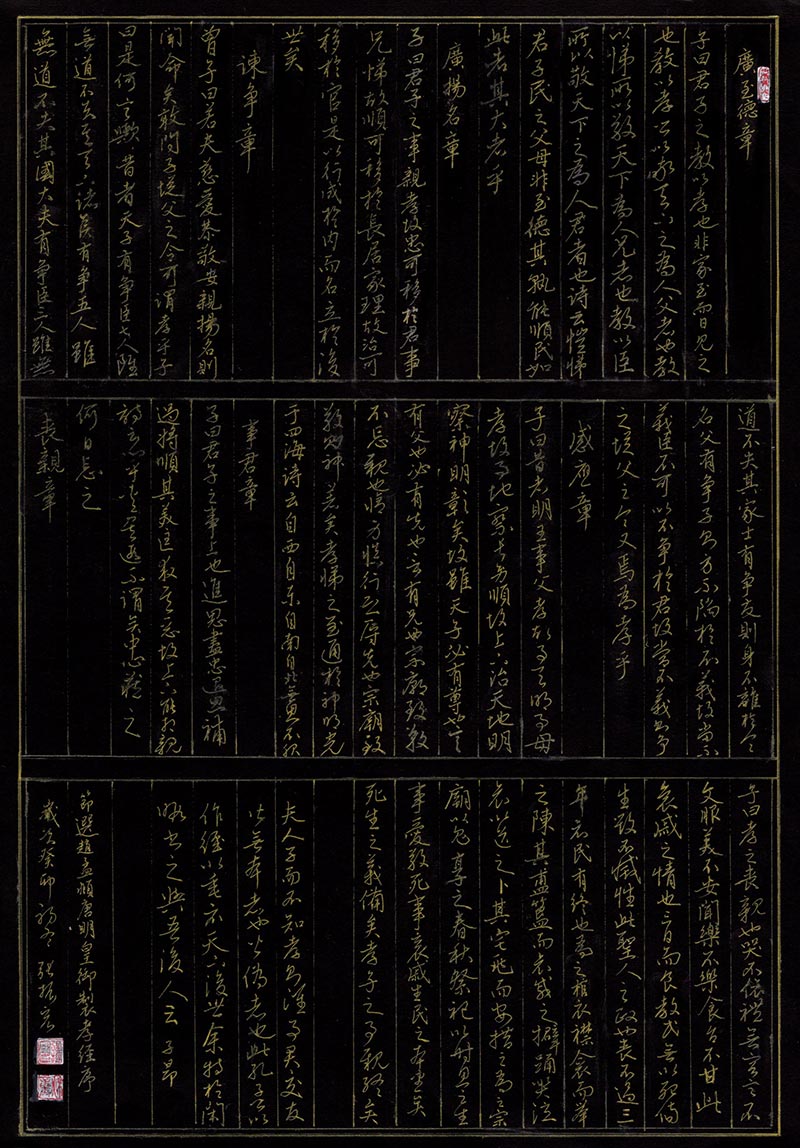 廣至德章
子曰君子之教以孝也非家至而日見之
也教以孝所以敬天下之為人父者也教
以悌所以敬天下為人兄者也教以臣
所以敬天下之為人君者也詩云愷悌
君子民之父母非至德其孰能順民如
此者其大者乎
廣揚名章
子曰君子之事親孝故忠可移於君事
兄悌故順可移於長居家理故治可
移於官是以行成於內而名立於後
世矣
諫争章
曾子曰若夫慈愛恭敬安親揚名則
聞命矣敢問子從父之令可謂孝乎子
曰是何言歟昔者天子有争臣七人雖
無道不失其天下諸侯有争五人雖
無道不失其國大夫有争臣三人雖無
道不失其家士有争友則身不離於令
名父有争子則身不陷於不義故當不
義臣不可以不争於君故當不義則争
之從父之令又焉為孝乎
感應章
子曰昔者明王事父孝故事天明事母
孝故事地察長幼順故上下治天地明
察神明彰矣故雖天子必有尊也言
有父也必有先也言有兄也宗廟致敬
不忘親也脩身慎行恐辱先也宗廟致
敬鬼神著矣孝悌之至通於神明光
于四海詩云自西自東自南自北無思不服
事君章
子曰君子之事上也進思盡忠退思補
過將順其美匡救其惡故上下能相親
詩云心乎愛矣遐不謂矣中心藏之
何日忘之
喪親章
子曰孝之喪親也哭不偯禮無容言不
文服美不安聞樂不樂食旨不甘此
哀戚之情也三日而食教民無以死傷
生毀不滅性此聖人之政也喪不過三
年示民有終也為之棺衣襟舍而舉
之陳其簠簋而哀慼之擗踊哭泣
哀以送之卜其宅兆而安措之為之宗
廟以鬼享之春秋祭祀以時思之生
事愛敬死事哀戚生民之本盡矣
死生之義備矣孝子之事親終矣
夫人子而不知孝則雖事君交友
皆無本者也偽者也此孔子所以
作經以垂示天下後世余特於閑
暇書之與吾後人云 子昂
節選趙孟頫唐明皇御製孝經序
歲次癸卯 張